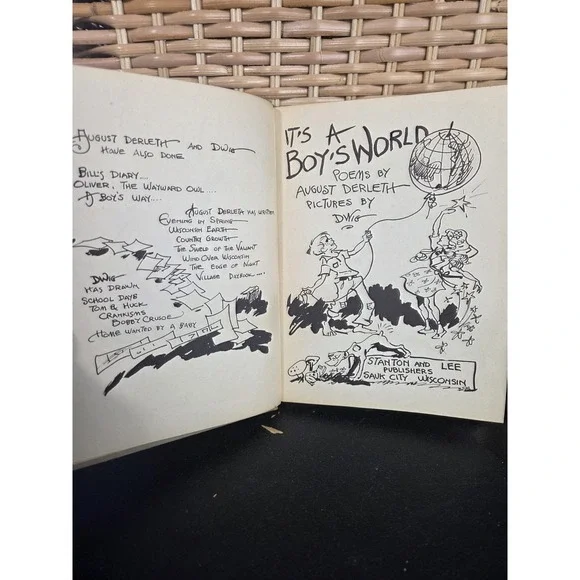 AUGUST DERLETH AND DWIG
HAVE ALSO DONE
BILL'S DIARY....
OLIVER, THE WAYWARD OWL....
A BOY'S WAY....
AUGUST DERLETH HAS WRITTEN
EVENING IN SPRING
WISCONSIN EARTH
COUNTRY GROWTH
THE SHIELD OF THE VALIANT
WIND OVER WISCONSIN
THE EDGE OF NIGHT
VILLAGE DAYBOOK....
DWIG
HAS DRAWN
SCHOOL DAYS
TOM & HUCK
CRANKISMS
BOBBY CRUSOE
(HOME WANTED BY A BABY
IT'S A
BOY'S WORLD
POEMS BY
AUGUST DERLETH
PICTURES BY
DWIG
STANTON AND LEE
PUBLISHERS
SAUK CITY WISCONSIN